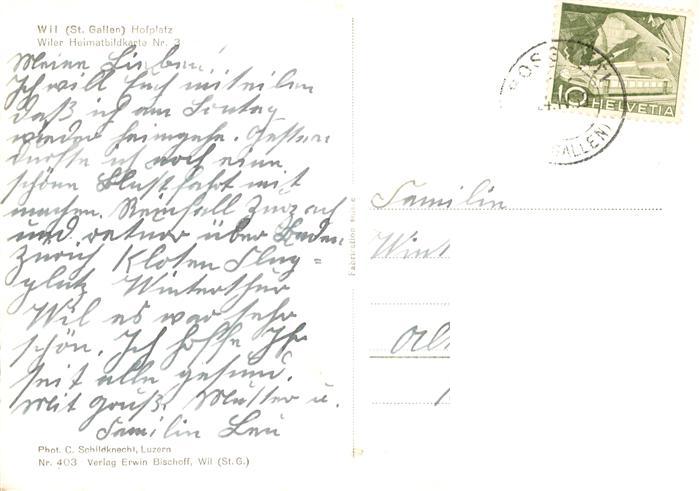 Wil (St. Gallen) Hofplatz
Wiler Heimatbildkarte Nr. 3
Meine Lieben!
Ich will Euch mitteilen
daß ich am Sontag
wieder heimgehe. Gestern
durfte ich noch eine
schöne Blustfahrt mit
machen. Reinfall Zurzach
und retour über Baden
Zürich Kloten Flug=
platz Winterthur
Wil es war sehr
schön. Ich hoffe Ihr
seit alle gesund.
Mit Gruß. Mutter u.
Familie Leu
Phot. C. Schildknecht, Luzern
Nr. 403 Verlag Erwin Bischoff, Wil (St. G.)
Fabrication
10
HELVETIA
GALLEN)
Familie
Wint